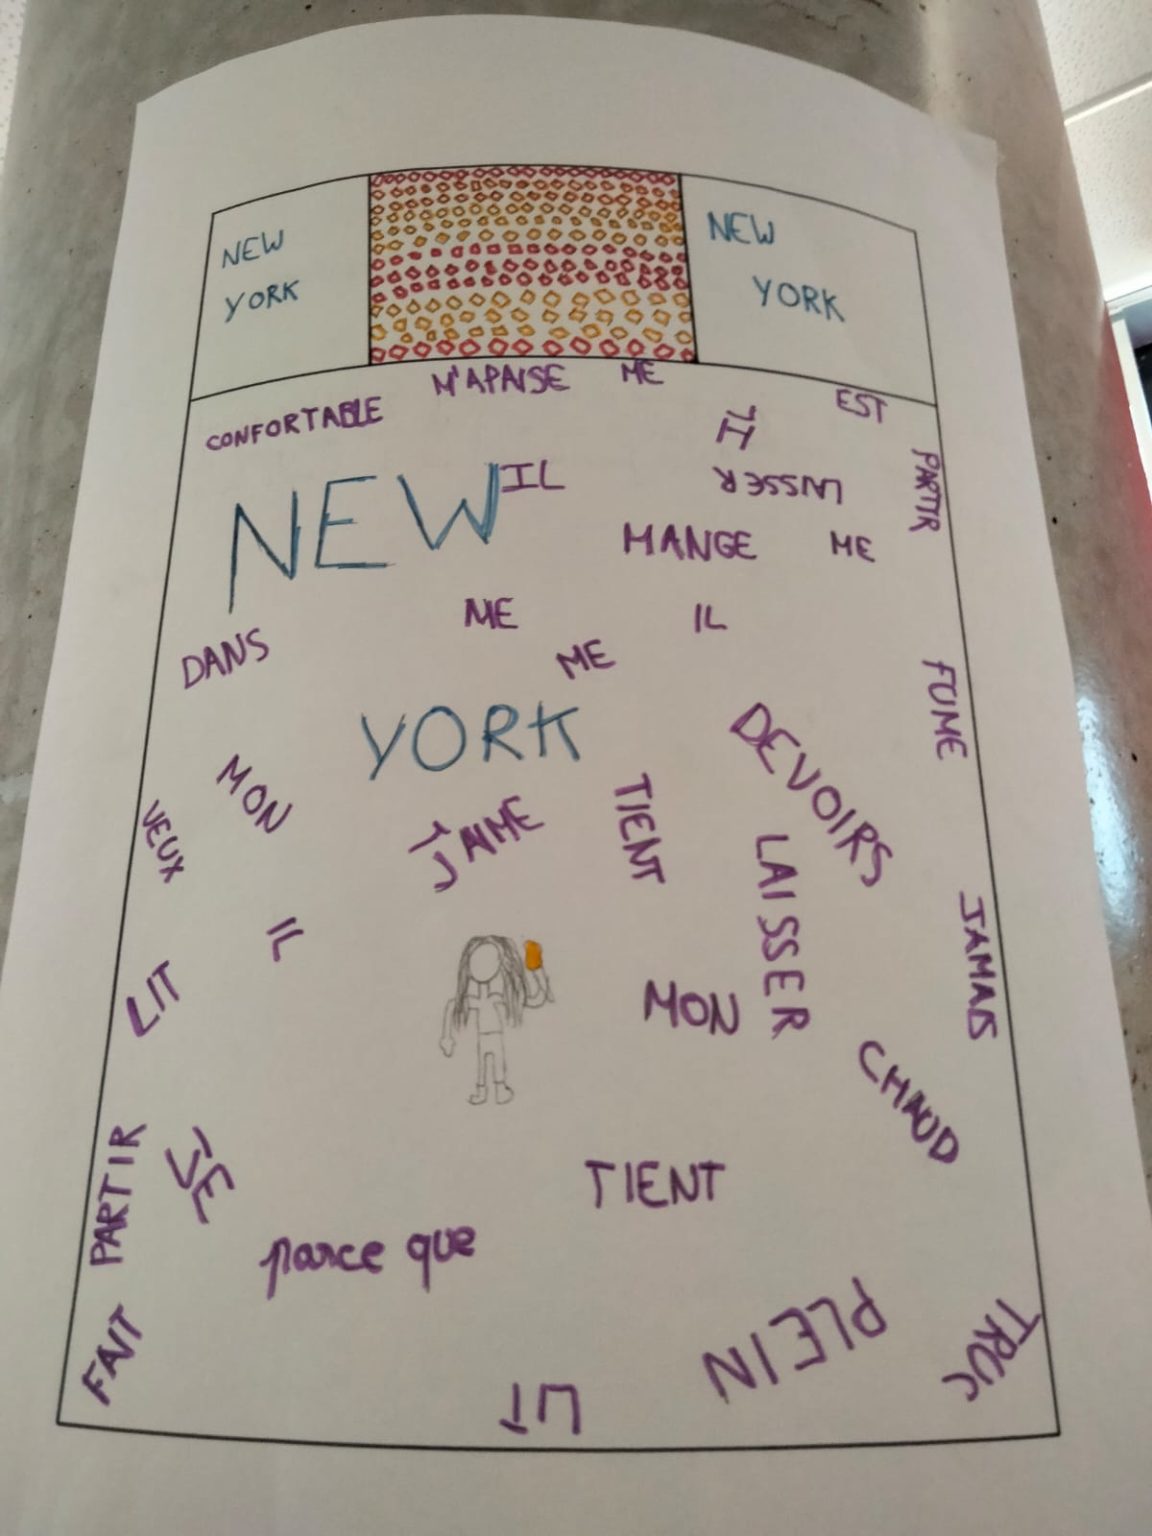 NEW
YORK
NEW
YORK
M'APAISE ME
CONFORTABLE
EST
IL
PARTIR
NEW
IL
LAISSER
MANGE ME
ME
IL
DANS
ME
FUME
YORK
DEVOIRS
MON
J'AIME
TIENT
VEUX
LAISSER
JAMAIS
IL
LIT
MON
CHAUD
PARTIR
JE
TIENT
parce que
FAIT
PLEIN
TRUC
LIT